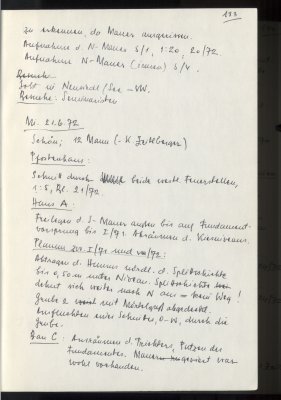 133
zu erkennen, da Mauer ausgerissen.
Aufnahme d. N-Mauer S/1, 1:20, 20/72.
Aufnahme N-Mauer (innen) S/4.
Besuche
in Neusiedl/See - VW.
Besuche: Seminaristen
Mi. 21.6.72
Schön; 12 Mann (-K.
Pfostenhaus:
Schnitt durch beide Feuerstellen,
1:5, Bl. 21/72
Haus A:
Freilegen d. S-Mauer außen bis auf Fundament-
vorsprung bis I/71. Abräumen d.
Planum zu I/71 und
Abtragen d. Humus nördl. d. Splittschichte
bis 0,50 m unter Niveau. Splittschichte
dehnt sich weiter nach N aus – Weg!
Grube 2 mit Mörtelguß abgedeckt.
eines Schnittes, O-W, durch die
Grube.
Bau C: Ausräumen d. Trichters, Putzen der
Fundamente. Mauer war
wohl vorhanden.